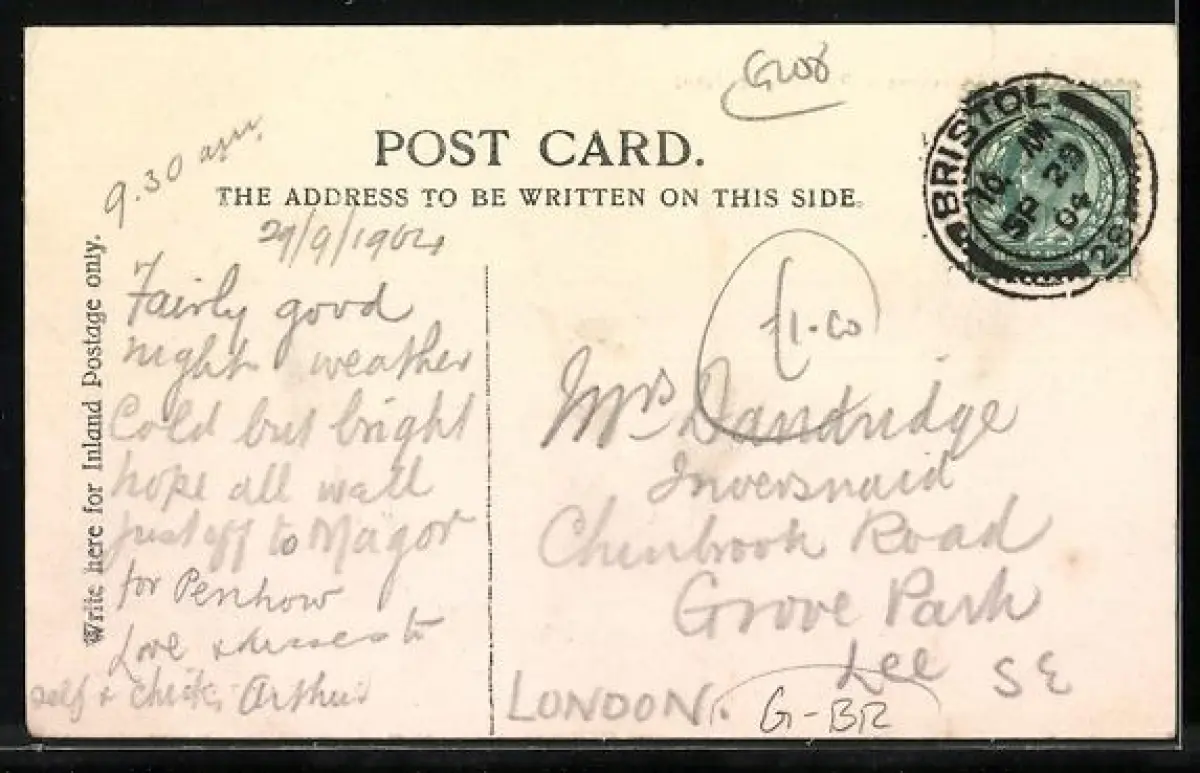 POST CARD.
THE ADDRESS TO BE WRITTEN ON THIS SIDE.
Write here for Inland Postage only.
BRISTOL
10 AM
SP 29
04
28
9.30 am.
29/9/1904
Fairly good
night weather
Cold but bright
hope all well
just off to Magor
for Penhow
Love & kisses to
self & chick, Arthur
£1.00
Mrs Dandridge
Inversnaid
Chinbrook Road
Grove Park
Lee SE
LONDON.
G-BR